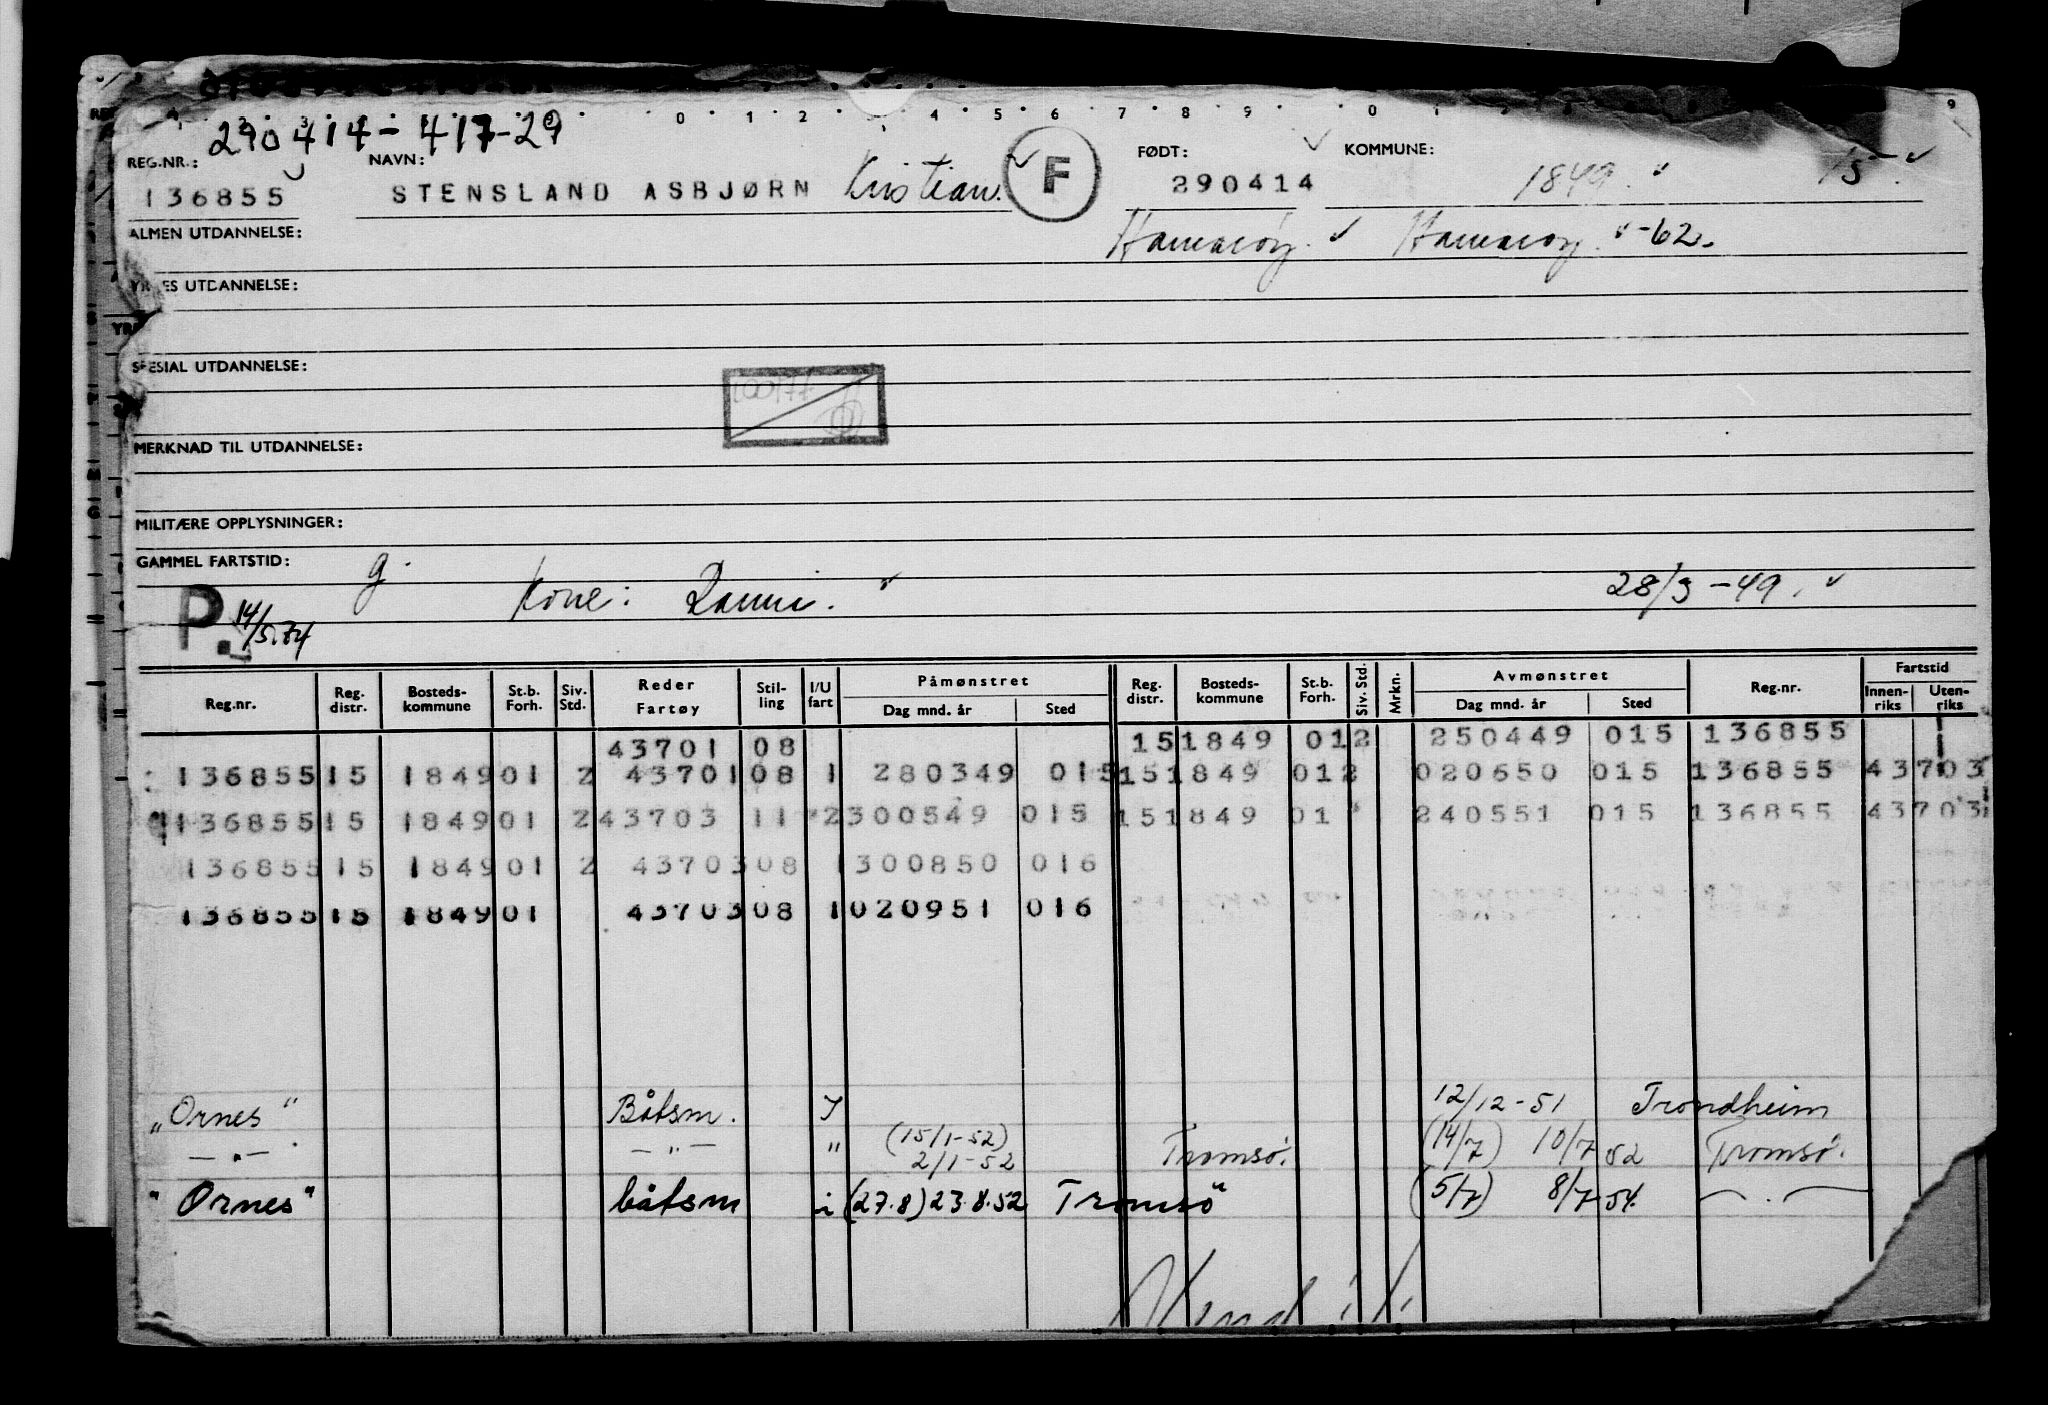 290414-417-29
REG.NR.: NAVN: F FØDT: KOMMUNE:
136855 STENSLAND ASBJØRN Kristian. 290414 1849. 15.
ALMEN UTDANNELSE: Hamarøy. Hamarøy. -62.
UTDANNELSE:
SPESIAL UTDANNELSE:
MERKNAD TIL UTDANNELSE:
MILITÆRE OPPLYSNINGER:
GAMMEL FARTSTID: g.
Kone: 28/3-49.
P. 14/5.74
Reg.nr. Reg. distr. Bosteds-kommune St.b. Forh. Siv. Std. Reder Fartøy Stil-ling I/U fart Påmønstret Dag mnd. år Sted Reg. distr. Bosteds-kommune St.b. Forh. Siv. Std. Mrkn. Avmønstret Dag mnd. år Sted Reg.nr. Fartstid Innen-riks Uten-riks
43701 08 15 1849 01 2 250449 015 136855
136855 15 1849 01 2 43701 08 1 280349 015 15 1849 01 2 020650 015 136855 43703
136855 15 1849 01 2 43703 11 2 300549 015 15 1849 01 240551 015 136855 43703
136855 15 1849 01 2 43703 08 1 300850 016
136855 15 1849 01 43703 08 1 020951 016
"Ornes" Båtsm. I 12/12-51 Trondheim
— " — — " — " (15/1-52) 2/1-52 Tromsø. (14/7) 10/7 52 Tromsø.
"Ornes" båtsm i (27.8) 23.8.52 Tromsø (5/7) 8/7-54. — . —
Vend!